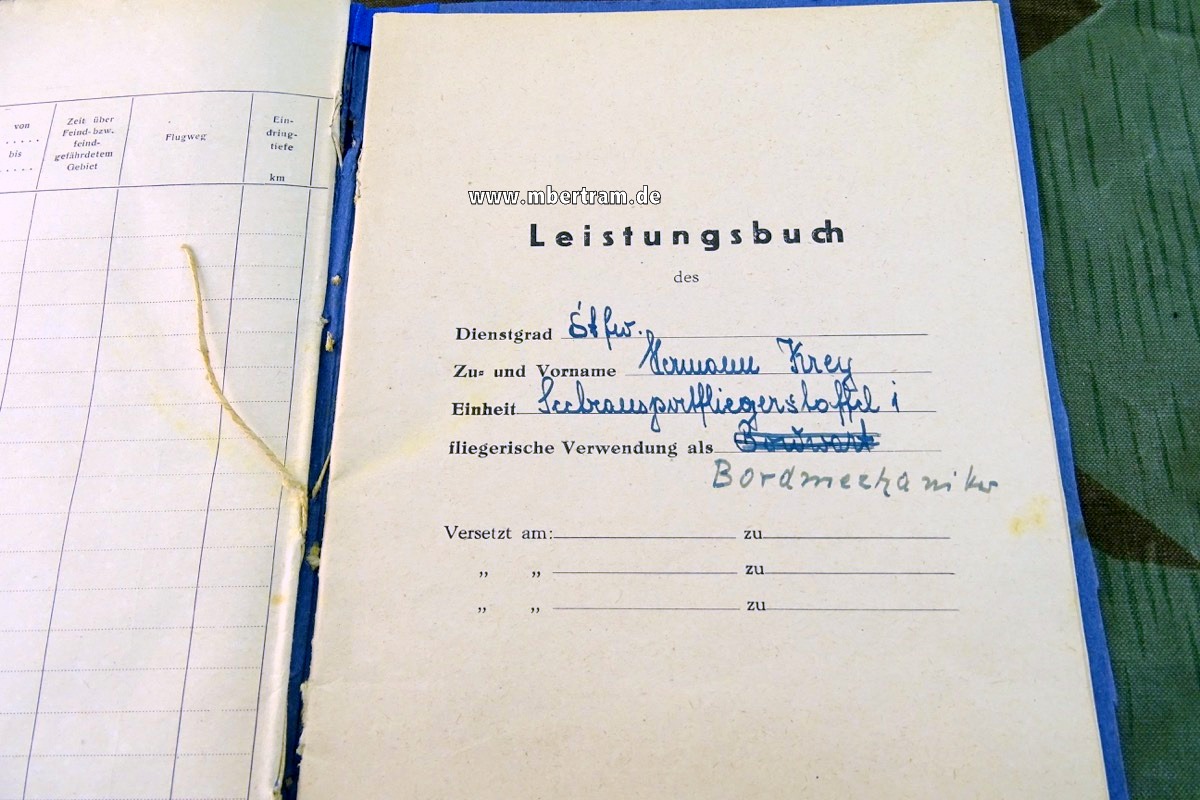 von
.....
bis
.....
Zeit über
Feind- bzw.
feind-
gefährdetem
Gebiet
Flugweg
Ein-
dring-
tiefe
km
www.mbertram.de
Leistungsbuch
des
Dienstgrad Stfw.
Zu- und Vorname Hermann Krey
Einheit Seetransportfliegerstaffel 1
fliegerische Verwendung als Bordwart
Bordmechaniker
Versetzt am: zu
„ „ zu
„ „ zu